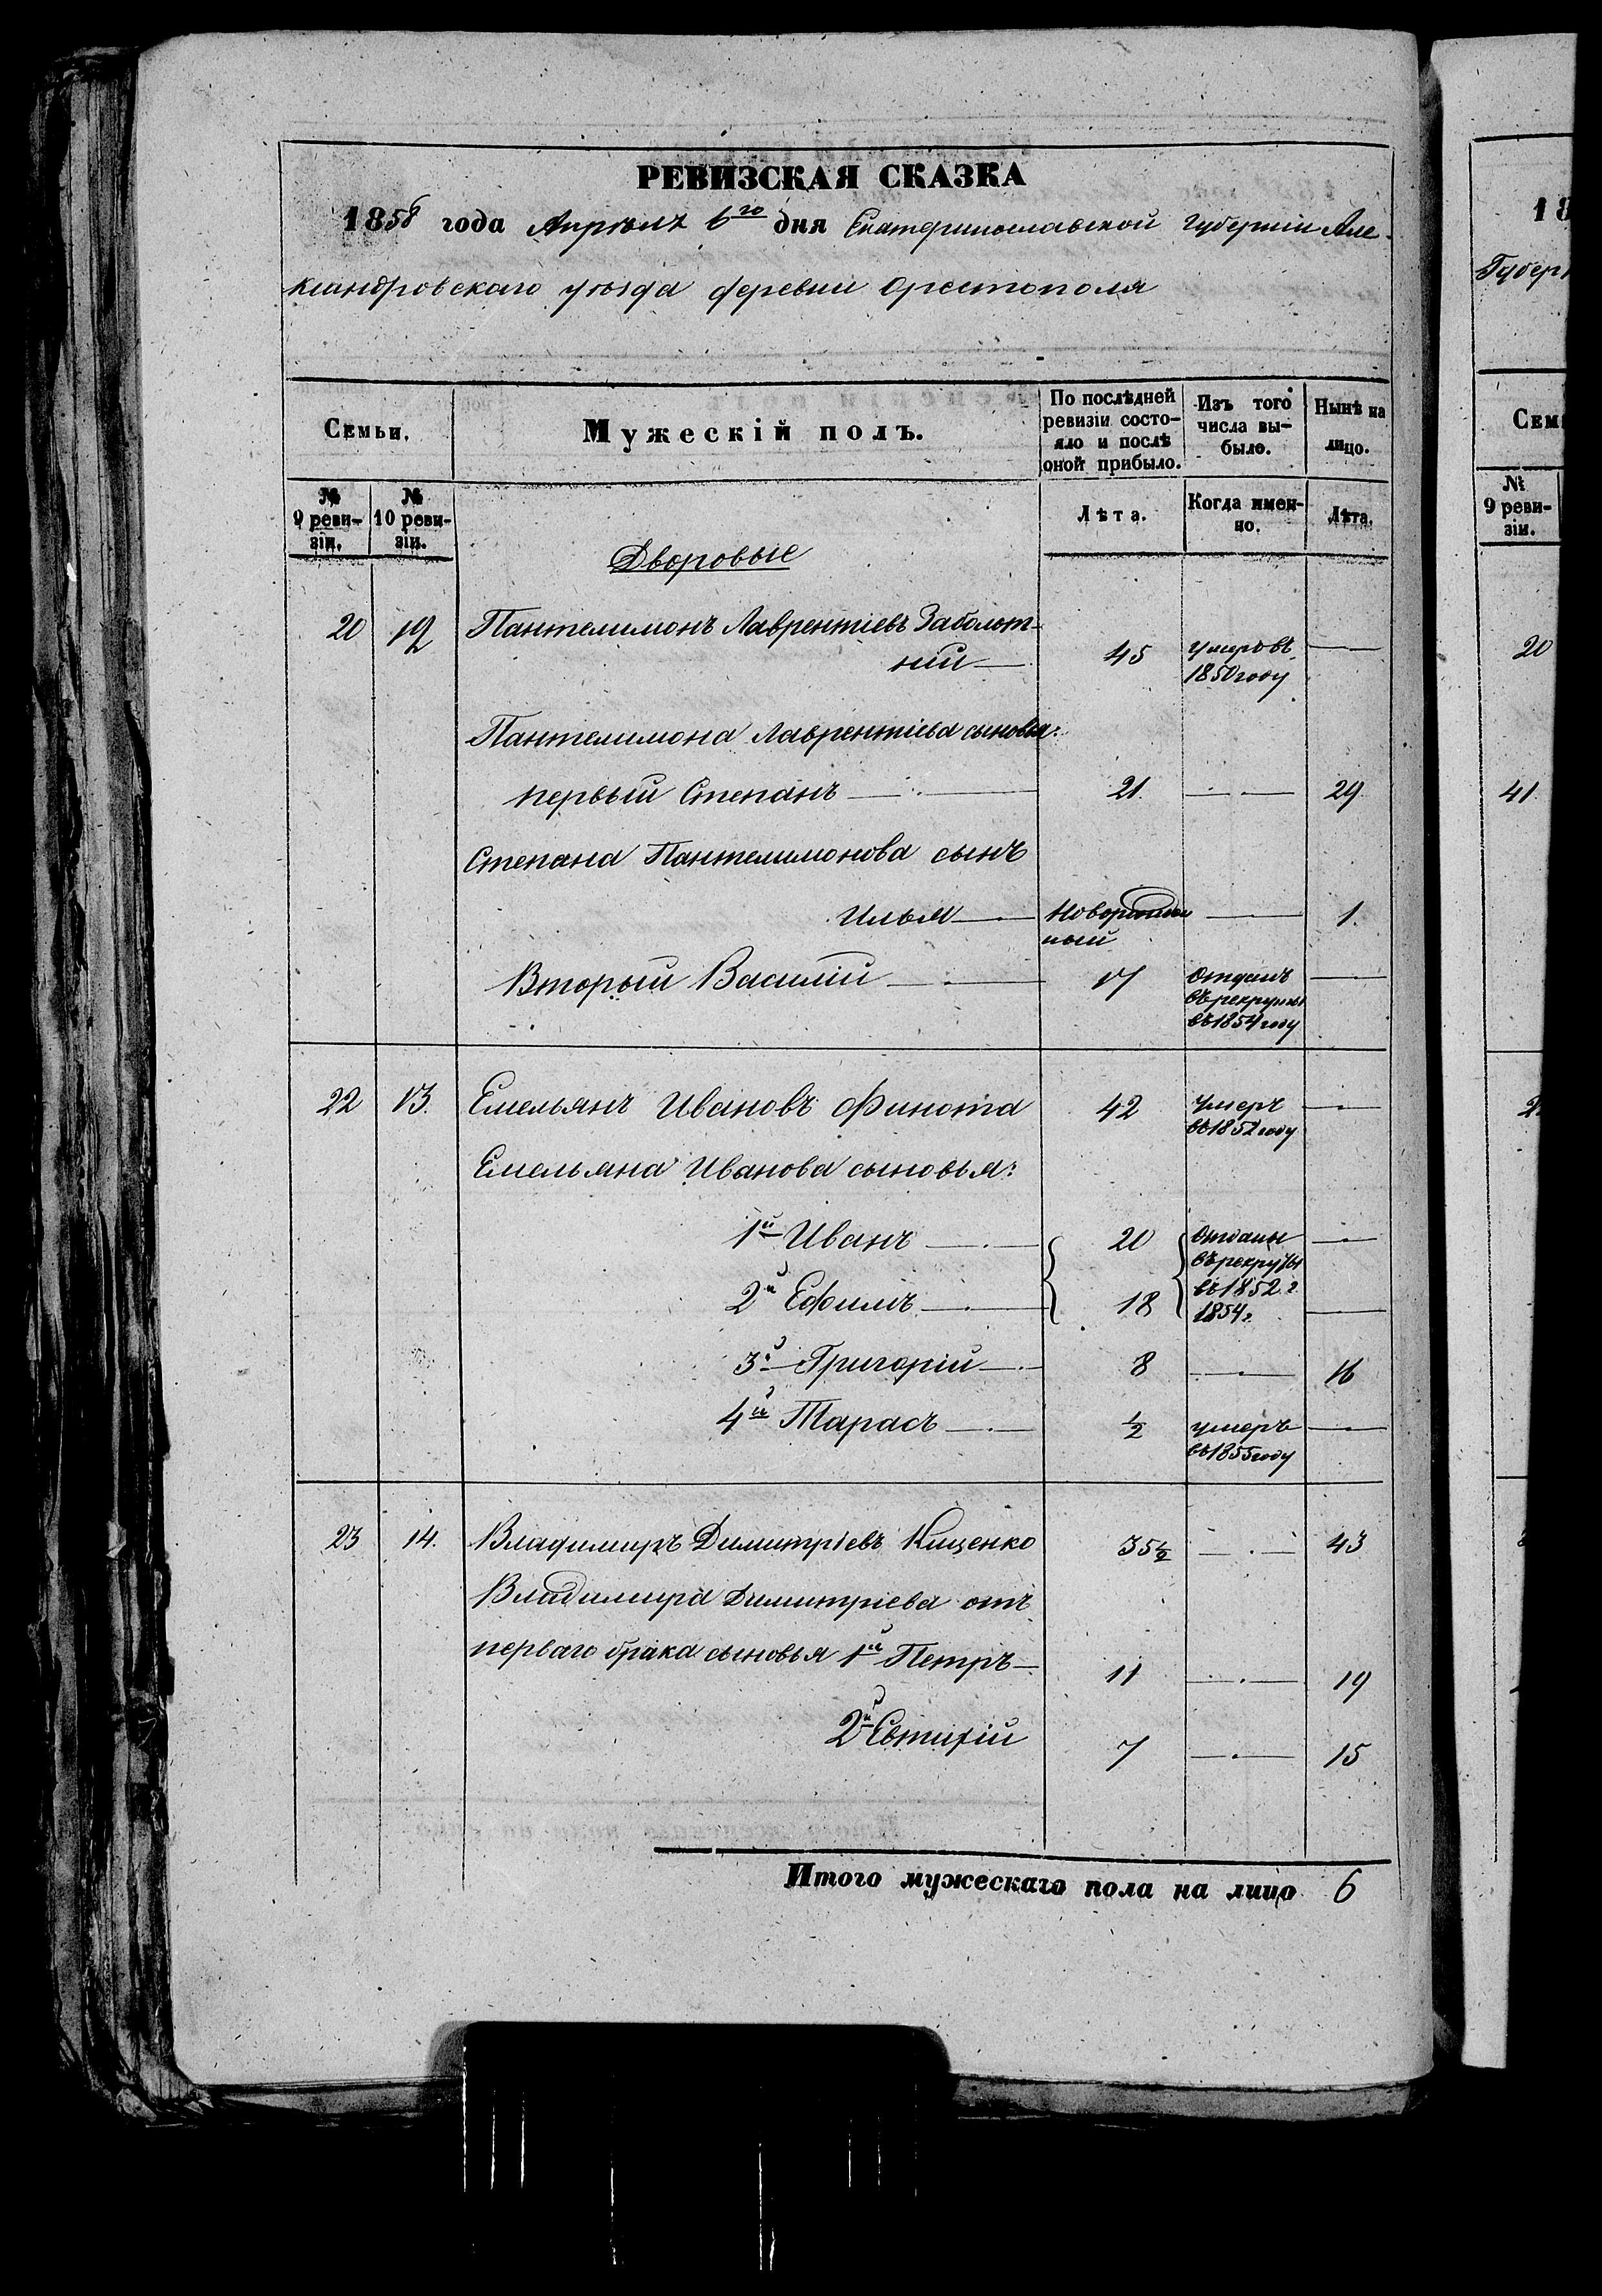 РЕВИЗСКАЯ СКАЗКА
1858 года Апрѣля 6го дня Екатеринославской Губерніи Але-
ксандровскаго уѣзда деревни Орестополя
Семьи.
Мужескій полъ.
По послѣдней
ревизіи состо-
яло и послѣ
оной прибыло.
Изъ того
числа вы-
было.
Нынѣ на
лицо.
№
9 реви-
зіи.
№
10 реви-
зіи.
Лѣта.
Когда имен-
но.
Лѣта.
Дворовые
20 12 Пантелимонъ Лаврентіевъ Заболот-
ній 45 умеръ въ
1850 году
Пантелимона Лаврентіева сыновья:
первый Степанъ 21. 29
Степана Пантелимонова сынъ
Илья Новорожден
ный 1.
Вторый Василій 17 отданъ
въ рекруты
въ 1854 году
22 13. Емельянъ Ивановъ Финота 42 умеръ
въ 1852 году
Емельяна Иванова сыновья:
1й Иванъ 20 отданы
въ рекруты
2й Ефимъ 18 въ 1852 г
1854 г.
3й Григорій 8 16
4й Тарасъ ½ умеръ
въ 1855 году
23 14. Владимиръ Димитріевъ Кищенко 35½ 43
Владимира Димитріева отъ
перваго брака сыновья 1й Петръ 11 19
2й Евтихій 7 15
Итого мужескаго пола на лицо 6
18
Губерн
Сем
№
9 реви-
зіи.
20
41